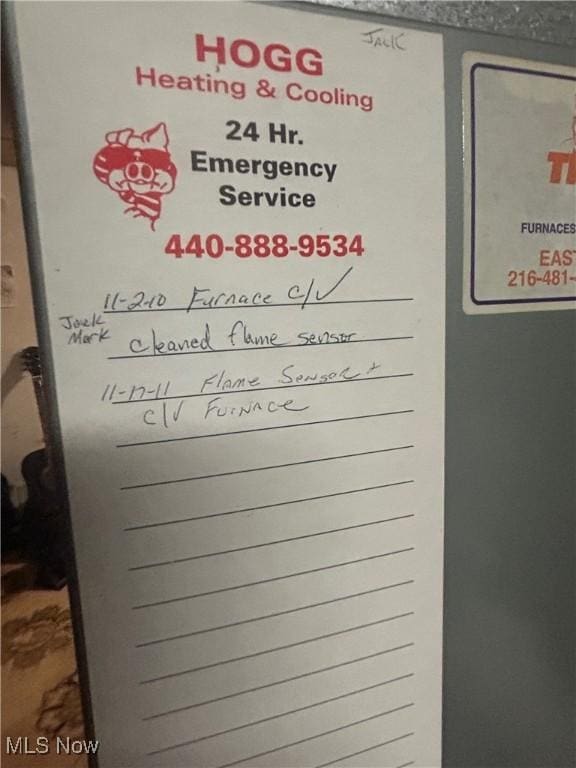 JACK
HOGG
Heating & Cooling
24 Hr.
Emergency
Service
440-888-9534
11-2-10 Furnace C/V
Jack
Mark
cleaned flame sensor
11-17-11 Flame Sensor +
C/V Furnace
FURNACES
EAS
216-481-
MLS Now